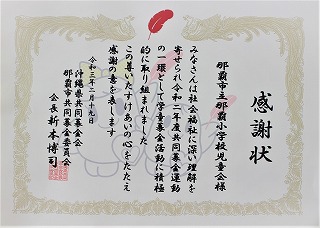 感謝状
那覇市立那覇小学校児童会様
みなさんは社会福祉に深い理解を
寄せられ令和二年度共同募金運動
の一環として学童募金活動に積極
的に取り組まれました
この善いたすけあいの心をたたえ
感謝の意を表します
令和三年二月十九日
沖縄県共同募金会
那覇市共同募金委員会
会長 新本博司